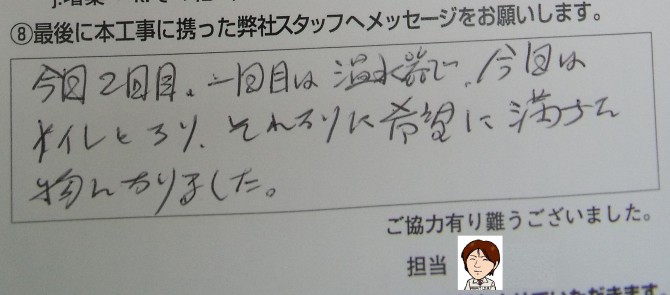 ⑧最後に本工事に携った弊社スタッフへメッセージをお願いします。
今回2回目、一回目は温水器で、今回は
トイレとなり、それなりに希望に満ちた
物になりました。
ご協力有り難うございました。
担当